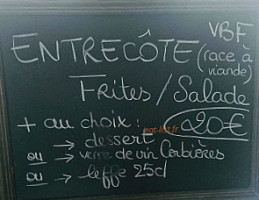 VBF
ENTRECÔTE (race à
viande)
Frites / Salade
+ au choix : 20€
→ dessert
ou → verre de vin Corbières
ou → leffe 25cl